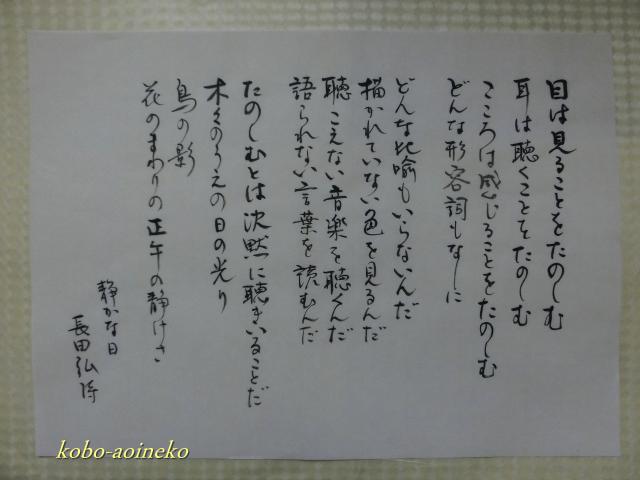 目は見ることをたのしむ
耳は聴くことをたのしむ
こころは感じることをたのしむ
どんな形容詞もなしに
どんな比喩もいらないんだ
描かれていない色を見るんだ
聴こえない音楽を聴くんだ
語られない言葉を読むんだ
たのしむとは沈黙に聴きいることだ
木々のうえの日の光り
鳥の影
花のまわりの正午の静けさ
静かな日
長田弘 詩
kobo-aoineko